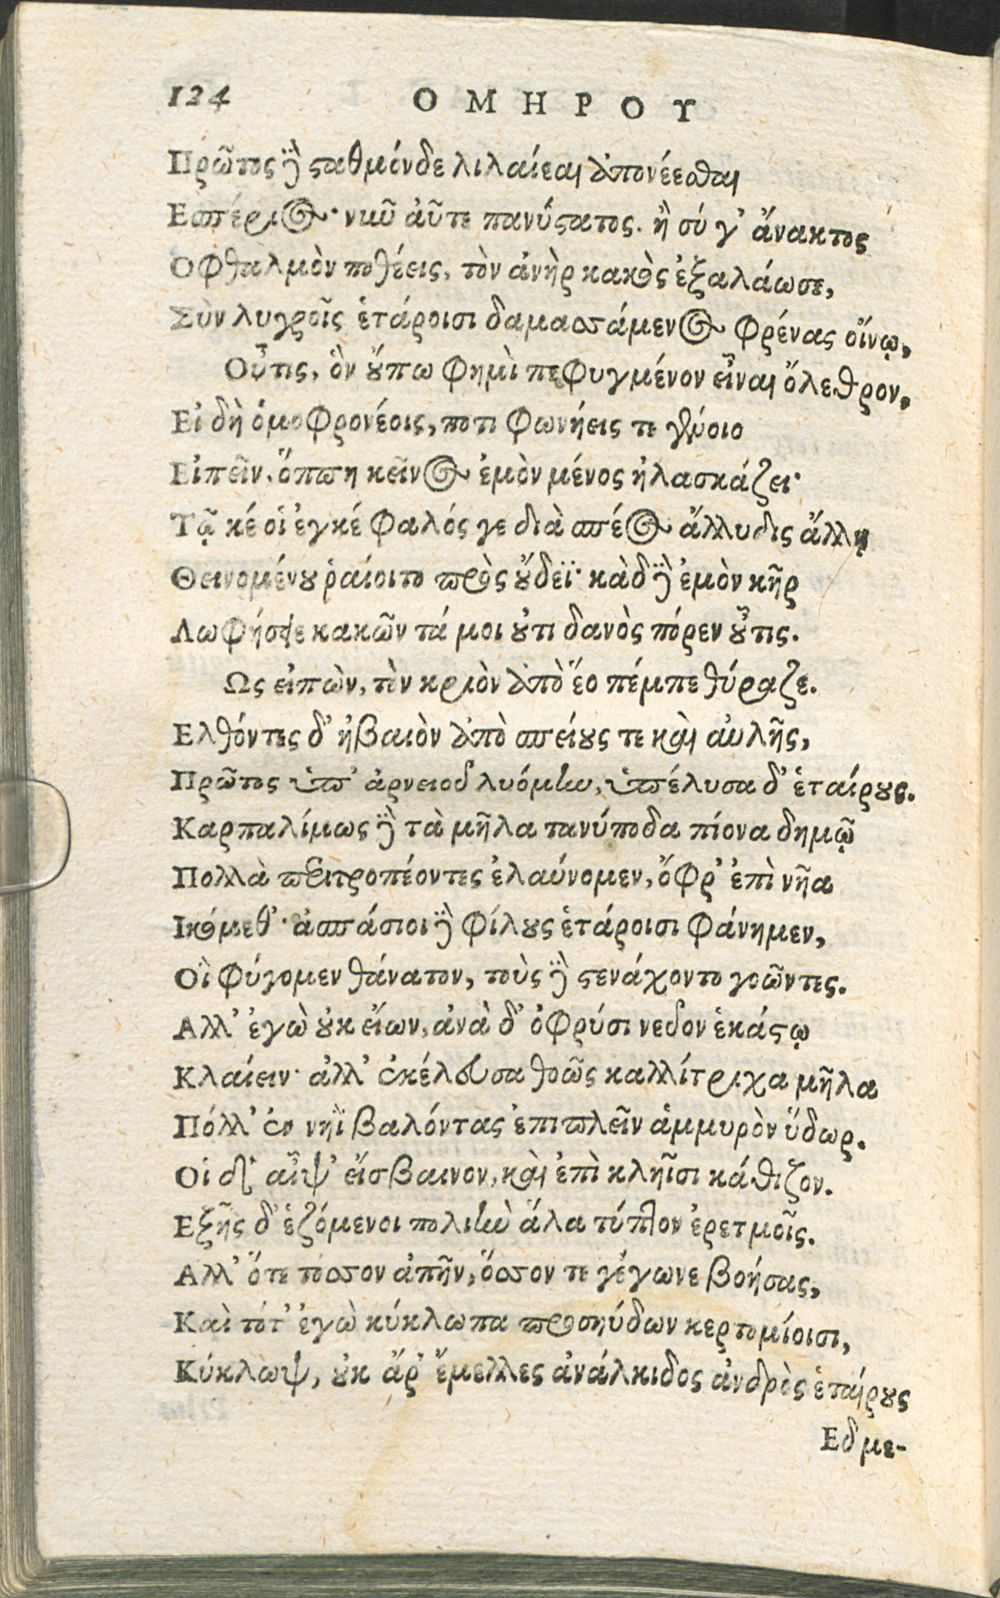 124 ΟΜΗΡΟΥ
Πρῶτος ἢ ςαθμόνδε λιλαίεαι ἀπονέεσθαι
Εσπέριος· νιῦ ἀῦτε πανύςατος. ἢ σύ γ' ἄνακτος
Οφθαλμὸν ποθέεις, τὸν ἀνὴρ κακὸς ἐξαλάωσε,
Σὺν λυγροῖς ἑτάροισι δαμασσάμενος φρένας οἴνῳ,
Οὖτις, ὃν ὔπω φημὶ πεφυγμένον εἶναι ὄλεθρον,
Εἰ δὴ ὁμοφρονέοις, ποτι φωνήεις τε γένοιο
Εἰπεῖν, ὅππη κεῖνος ἐμὸν μένος ἠλασκάζει·
Τῷ κέ οἱ ἐγκέφαλός γε διὰ σπέος ἄλλυδις ἄλλῃ
Θεινομένου ῥαίοιτο πρὸς ὔδεϊ· κὰδ δὲ ἐμὸν κῆρ
Λωφήσειε κακῶν τά μοι ὐτιδανὸς πόρεν ὖτις.
Ως εἰπὼν, τὸν κριὸν ἀπὸ ἕο πέμπε θύραζε.
Ελθόντες δ' ἠβαιὸν ἀπὸ σπείους τε καὶ αὐλῆς,
Πρῶτος ὑπ' ἀρνειοῦ λυόμην, ὑπέλυσα δ' ἑταίρους.
Καρπαλίμως δὲ τὰ μῆλα τανύποδα πίονα δημῷ
Πολλὰ περιτροπέοντες ἐλαύνομεν, ὄφρ' ἐπὶ νῆα
Ικόμεθ'· ἀσπάσιοι δὲ φίλους ἑτάροισι φάνημεν,
Οἳ φύγομεν θάνατον, τοὺς δὲ ςενάχοντο γοῶντες.
Αλλ' ἐγὼ οὐκ εἴων, ἀνὰ δ' ὀφρύσι νεῦον ἑκάςῳ
Κλαίειν· ἀλλ' ἐκέλευσα θοῶς καλλίτριχα μῆλα
Πόλλ' ἐν νηῒ βαλόντας ἐπιπλεῖν ἁμμυρὸν ὕδωρ.
Οἱ δ' αἶψ' εἴσβαινον, καὶ ἐπὶ κληῖσι κάθιζον.
Εξῆς δ' ἑζόμενοι πολιὴν ἅλα τύπτον ἐρετμοῖς.
Αλλ' ὅτε τόσσον ἀπῆν, ὅσσον τε γέγωνε βοήσας,
Καὶ τότ' ἐγὼ κύκλωπα προσηύδων κερτομίοισι,
Κύκλωψ, οὐκ ἄρ' ἔμελλες ἀνάλκιδος ἀνδρὸς ἑταίρους
Εδμε-